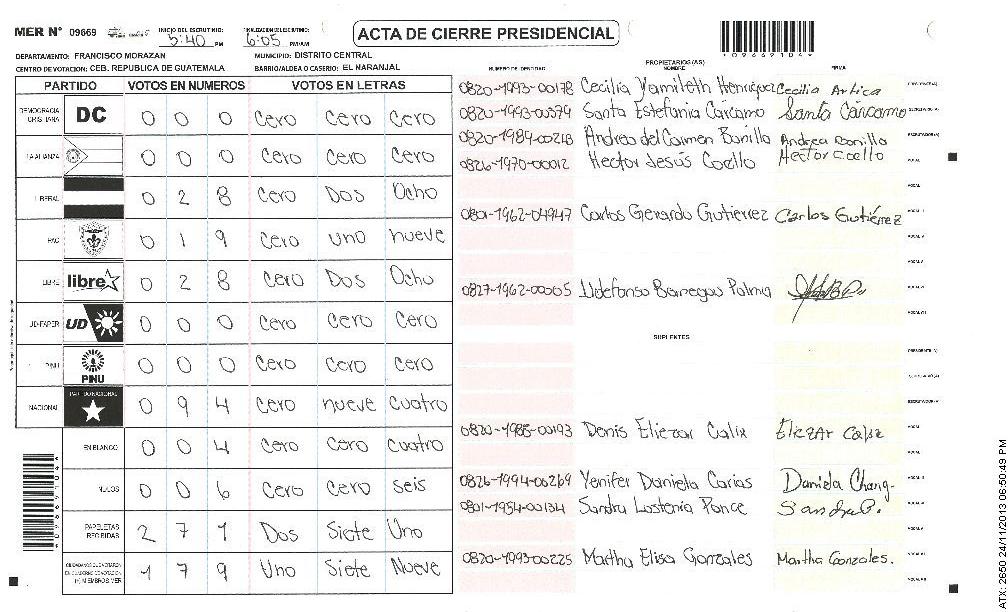 MER N° 09669 INICIO DEL ESCRUTINIO: 5:40 PM FINALIZACION DEL ESCRUTINIO: 6:05 PM/AM ACTA DE CIERRE PRESIDENCIAL
DEPARTAMENTO: FRANCISCO MORAZAN MUNICIPIO: DISTRITO CENTRAL
CENTRO DE VOTACION: CEB. REPUBLICA DE GUATEMALA BARRIO/ALDEA O CASERIO: EL NARANJAL
PARTIDO VOTOS EN NUMEROS VOTOS EN LETRAS
DEMOCRACIA CRISTIANA DC 0 0 0 Cero Cero Cero
LA ALIANZA 0 0 0 Cero Cero Cero
LIBERAL 0 2 8 Cero Dos Ocho
PAC 0 1 9 Cero uno nueve
LIBRE libre 0 2 8 Cero Dos Ocho
UD-FAPER UD 0 0 0 Cero Cero Cero
PINU PINU 0 0 0 Cero Cero Cero
NACIONAL PARTIDO NACIONAL 0 9 4 Cero nueve cuatro
EN BLANCO 0 0 4 Cero Cero Cuatro
NULOS 0 0 6 Cero Cero seis
PAPELETAS RECIBIDAS 2 7 1 Dos Siete Uno
1 7 9 Uno Siete Nueve
NUMERO DE IDENTIDAD PROPIETARIOS(AS) NOMBRE FIRMA
*09669104*
0820-1993-00178 Cecilia Yamileth Henriquez Cecilia Artica
0820-1993-00379 Santa Estefania Cárcamo Santa Cárcamo
0820-1984-00248 Andrea del Carmen Bonilla Andrea Bonilla
0826-1970-00012 Hector Jesús Coello Hector Coello
0801-1962-04947 Carlos Gerardo Gutierrez Carlos Gutiérrez
0827-1962-00005 Ildefonso Banegas Palma
SUPLENTES
0820-1985-00193 Denis Eliezar Calix Eliezar Calix
0826-1994-00269 Yenifer Daniela Carias Daniela Chang
0801-1954-00134 Sandra Lastenia Ponce Sandra P.
0820-1993-00225 Martha Elisa Gonzales Martha Gonzales.
ATX: 2650 24/11/2013 06:50:49 PM